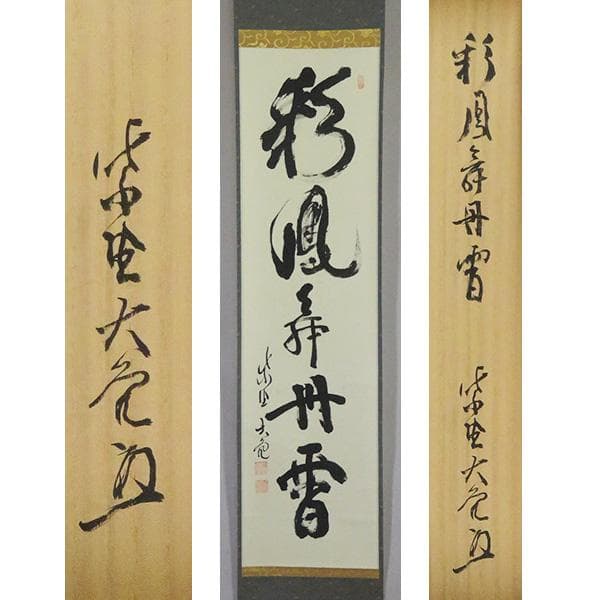 紫野大亀
彩鳳舞丹霄
紫野大亀
彩鳳舞丹霄
紫野大亀